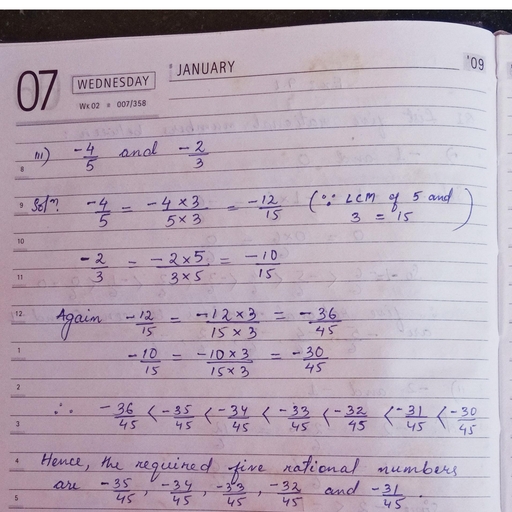 07 WEDNESDAY JANUARY '09
Wk 02 • 007/358
iii) -4/5 and -2/3
Solⁿ. -4/5 = -4×3/5×3 = -12/15 (∵ LCM of 5 and 3 = 15)
-2/3 = -2×5/3×5 = -10/15
Again -12/15 = -12×3/15×3 = -36/45
-10/15 = -10×3/15×3 = -30/45
∴ -36/45 < -35/45 < -34/45 < -33/45 < -32/45 < -31/45 < -30/45
Hence, the required five rational numbers
are -35/45, -34/45, -33/45, -32/45 and -31/45.
8
9
10
11
12
1
2
3
4
5